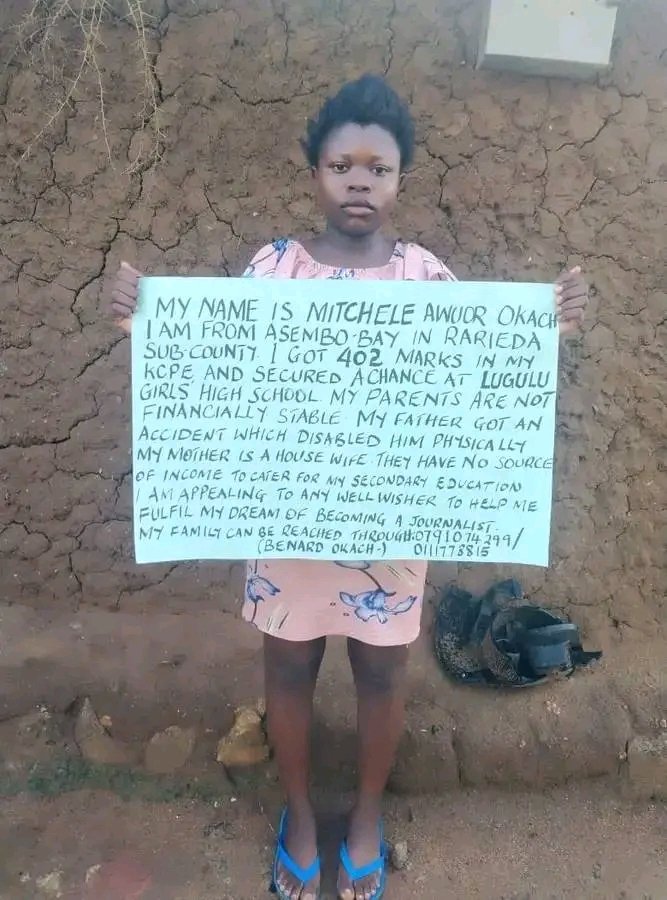 MY NAME IS MITCHELE AWUOR OKACH
I AM FROM ASEMBO-BAY IN RARIEDA
SUB-COUNTY. I GOT 402 MARKS IN MY
KCPE, AND SECURED A CHANCE AT LUGULU
GIRLS' HIGH SCHOOL. MY PARENTS ARE NOT
FINANCIALLY STABLE. MY FATHER GOT AN
ACCIDENT WHICH DISABLED HIM PHYSICALLY
MY MOTHER IS A HOUSE WIFE. THEY HAVE NO SOURCE
OF INCOME TO CATER FOR MY SECONDARY EDUCATION
I AM APPEALING TO ANY WELLWISHER TO HELP ME
FULFIL MY DREAM OF BECOMING A JOURNALIST.
MY FAMILY CAN BE REACHED THROUGH:0791074299/
(BENARD OKACH-) 0111773815